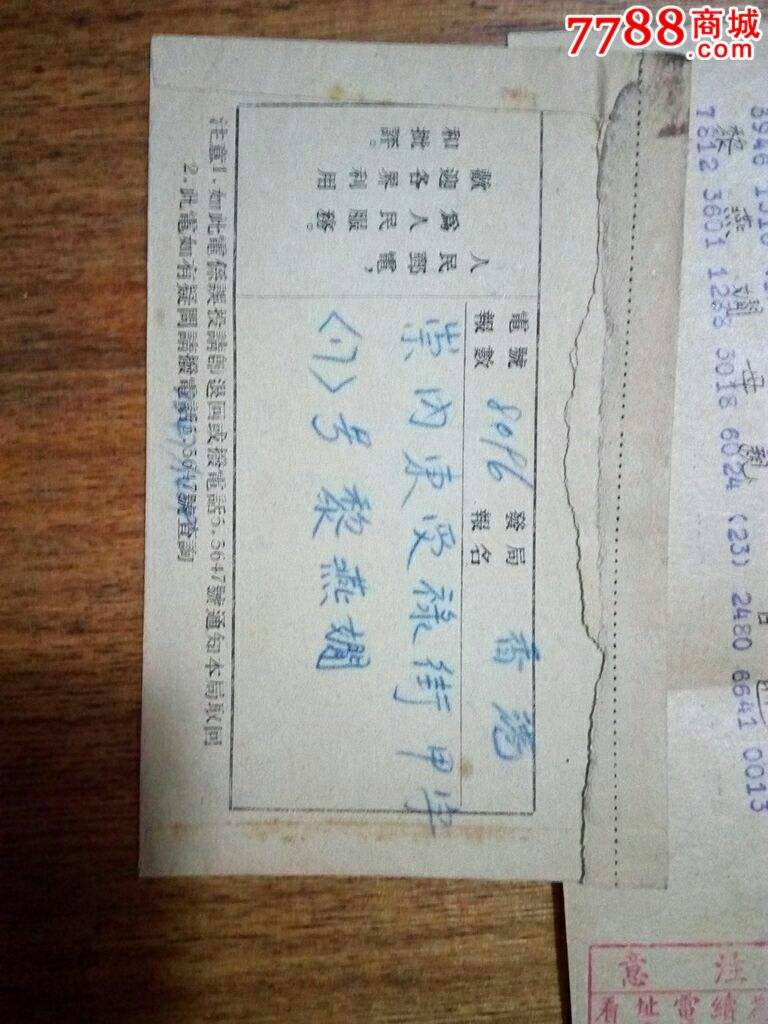 7788商城
.com
人民郵電,
為人民服務。
歡迎各界利用
和批評。
電報號數 發報局名 香港
崇内東受禄街甲字
(7)号 黎燕嫻
注意1.如此電係誤投請即退回或撥電話5.5647號通知本局取回
2.此電如有疑問請撥電話5.5647號查詢
黎燕嫻母親
7812 3601 1288 3018 6024 (23) 2480 6641 0013
注意
續電址看